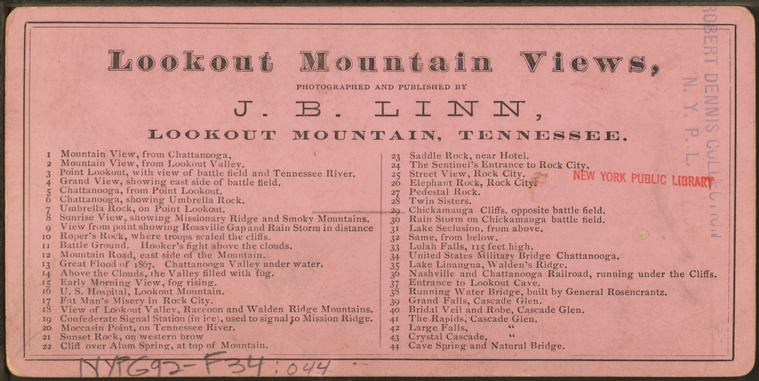 Lookout Mountain Views,
PHOTOGRAPHED AND PUBLISHED BY
J. B. LINN,
LOOKOUT MOUNTAIN, TENNESSEE.
1 Mountain View, from Chattanooga,
2 Mountain View, from Lookout Valley.
3 Point Lookout, with view of battle field and Tennessee River.
4 Grand View, showing east side of battle field.
5 Chattanooga, from Point Lookout.
6 Chattanooga, showing Umbrella Rock.
7 Umbrella Rock, on Point Lookout.
8 Sunrise View, showing Missionary Ridge and Smoky Mountains.
9 View from point showing Rossville Gap and Rain Storm in distance
10 Roper's Rock, where troops scaled the cliffs.
11 Battle Ground. Hooker's fight above the clouds.
12 Mountain Road, east side of the Mountain.
13 Great Flood of 1867. Chattanooga Valley under water.
14 Above the Clouds, the Valley filled with fog.
15 Early Morning View, fog rising.
16 U. S. Hospital, Lookout Mountain.
17 Fat Man's Misery in Rock City.
18 View of Lookout Valley, Raccoon and Walden Ridge Mountains.
19 Confederate Signal Station (in ice), used to signal to Mission Ridge.
20 Moccasin Point, on Tennessee River.
21 Sunset Rock, on western brow
22 Cliff over Alum Spring, at top of Mountain.
23 Saddle Rock, near Hotel.
24 The Sentinel's Entrance to Rock City.
25 Street View, Rock City.
26 Elephant Rock, Rock City.
27 Pedestal Rock.
28 Twin Sisters.
29 Chickamauga Cliffs, opposite battle field.
30 Rain Storm on Chickamauga battle field.
31 Lake Seclusion, from above.
32 Same, from below.
33 Lulah Falls, 115 feet high.
34 United States Military Bridge Chattanooga.
35 Lake Linaugua, Walden's Ridge.
36 Nashville and Chattanooga Railroad, running under the Cliffs.
37 Entrance to Lookout Cave.
38 Running Water Bridge, built by General Rosencrantz.
39 Grand Falls, Cascade Glen.
40 Bridal Veil and Robe, Cascade Glen.
41 The Rapids, Cascade Glen.
42 Large Falls, "
43 Crystal Cascade, "
44 Cave Spring and Natural Bridge.
ROBERT DENNIS COLLECTION
N. Y. P. L.
NEW YORK PUBLIC LIBRARY
NYPG92-F34:044